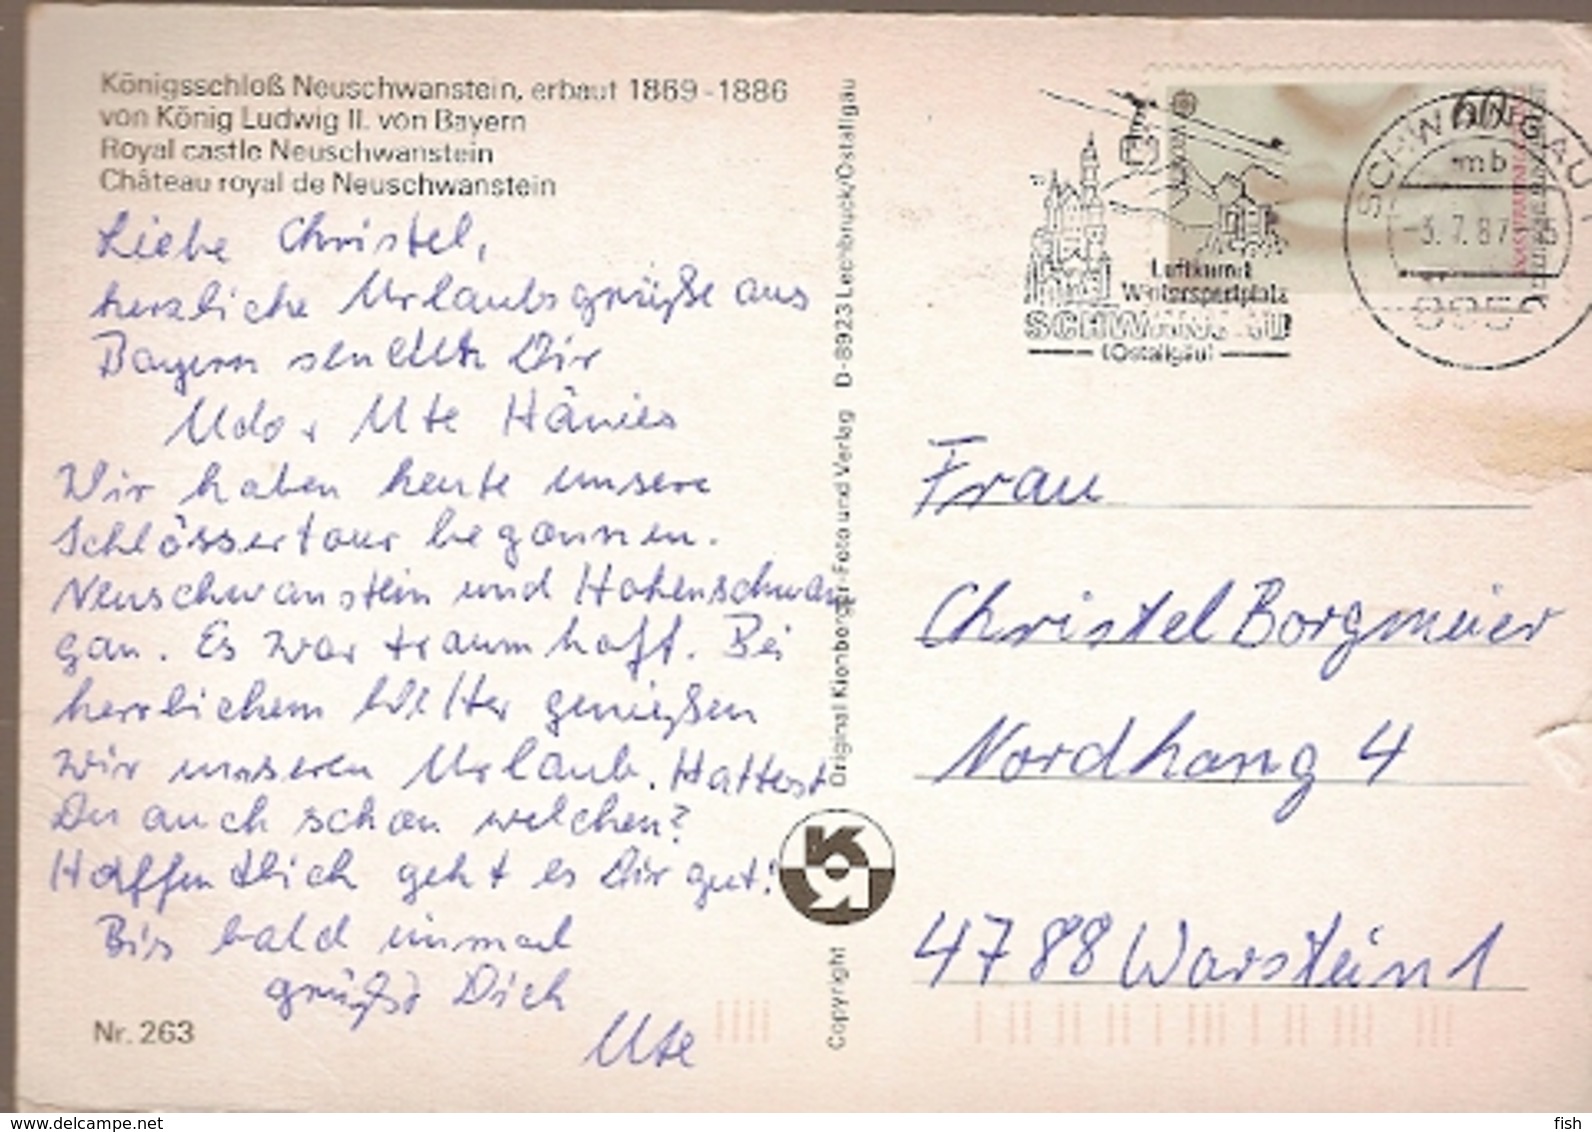 Königsschloß Neuschwanstein, erbaut 1869-1886
von König Ludwig II. von Bayern
Royal castle Neuschwanstein
Château royal de Neuschwanstein
Liebe Christel,
herzliche Urlaubsgrüße aus
Bayern senden Dir
Udo + Ute
Wir haben heute unsere
Schlössertour begonnen.
Neuschwanstein und Hohenschwan
gau. Es war traumhaft. Bei
herrlichem Wetter genießen
wir unseren Urlaub. Hattest
Du auch schon welchen?
Hoffentlich geht es Dir gut!
Bis bald einmal
grüßt Dich
Ute
Nr. 263
Copyright
Original Kienberger-Foto und Verlag D-8923 Lechbruck/Ostallgäu
Luftkurort
Wintersportplatz
SCHWANGAU
(Ostallgäu)
60
SCHWANGAU 1
mb
-3.7.87
895
Frau
Christel Borgmeier
Nordhang 4
4788 Warstein 1
www.delcampe.net
fish